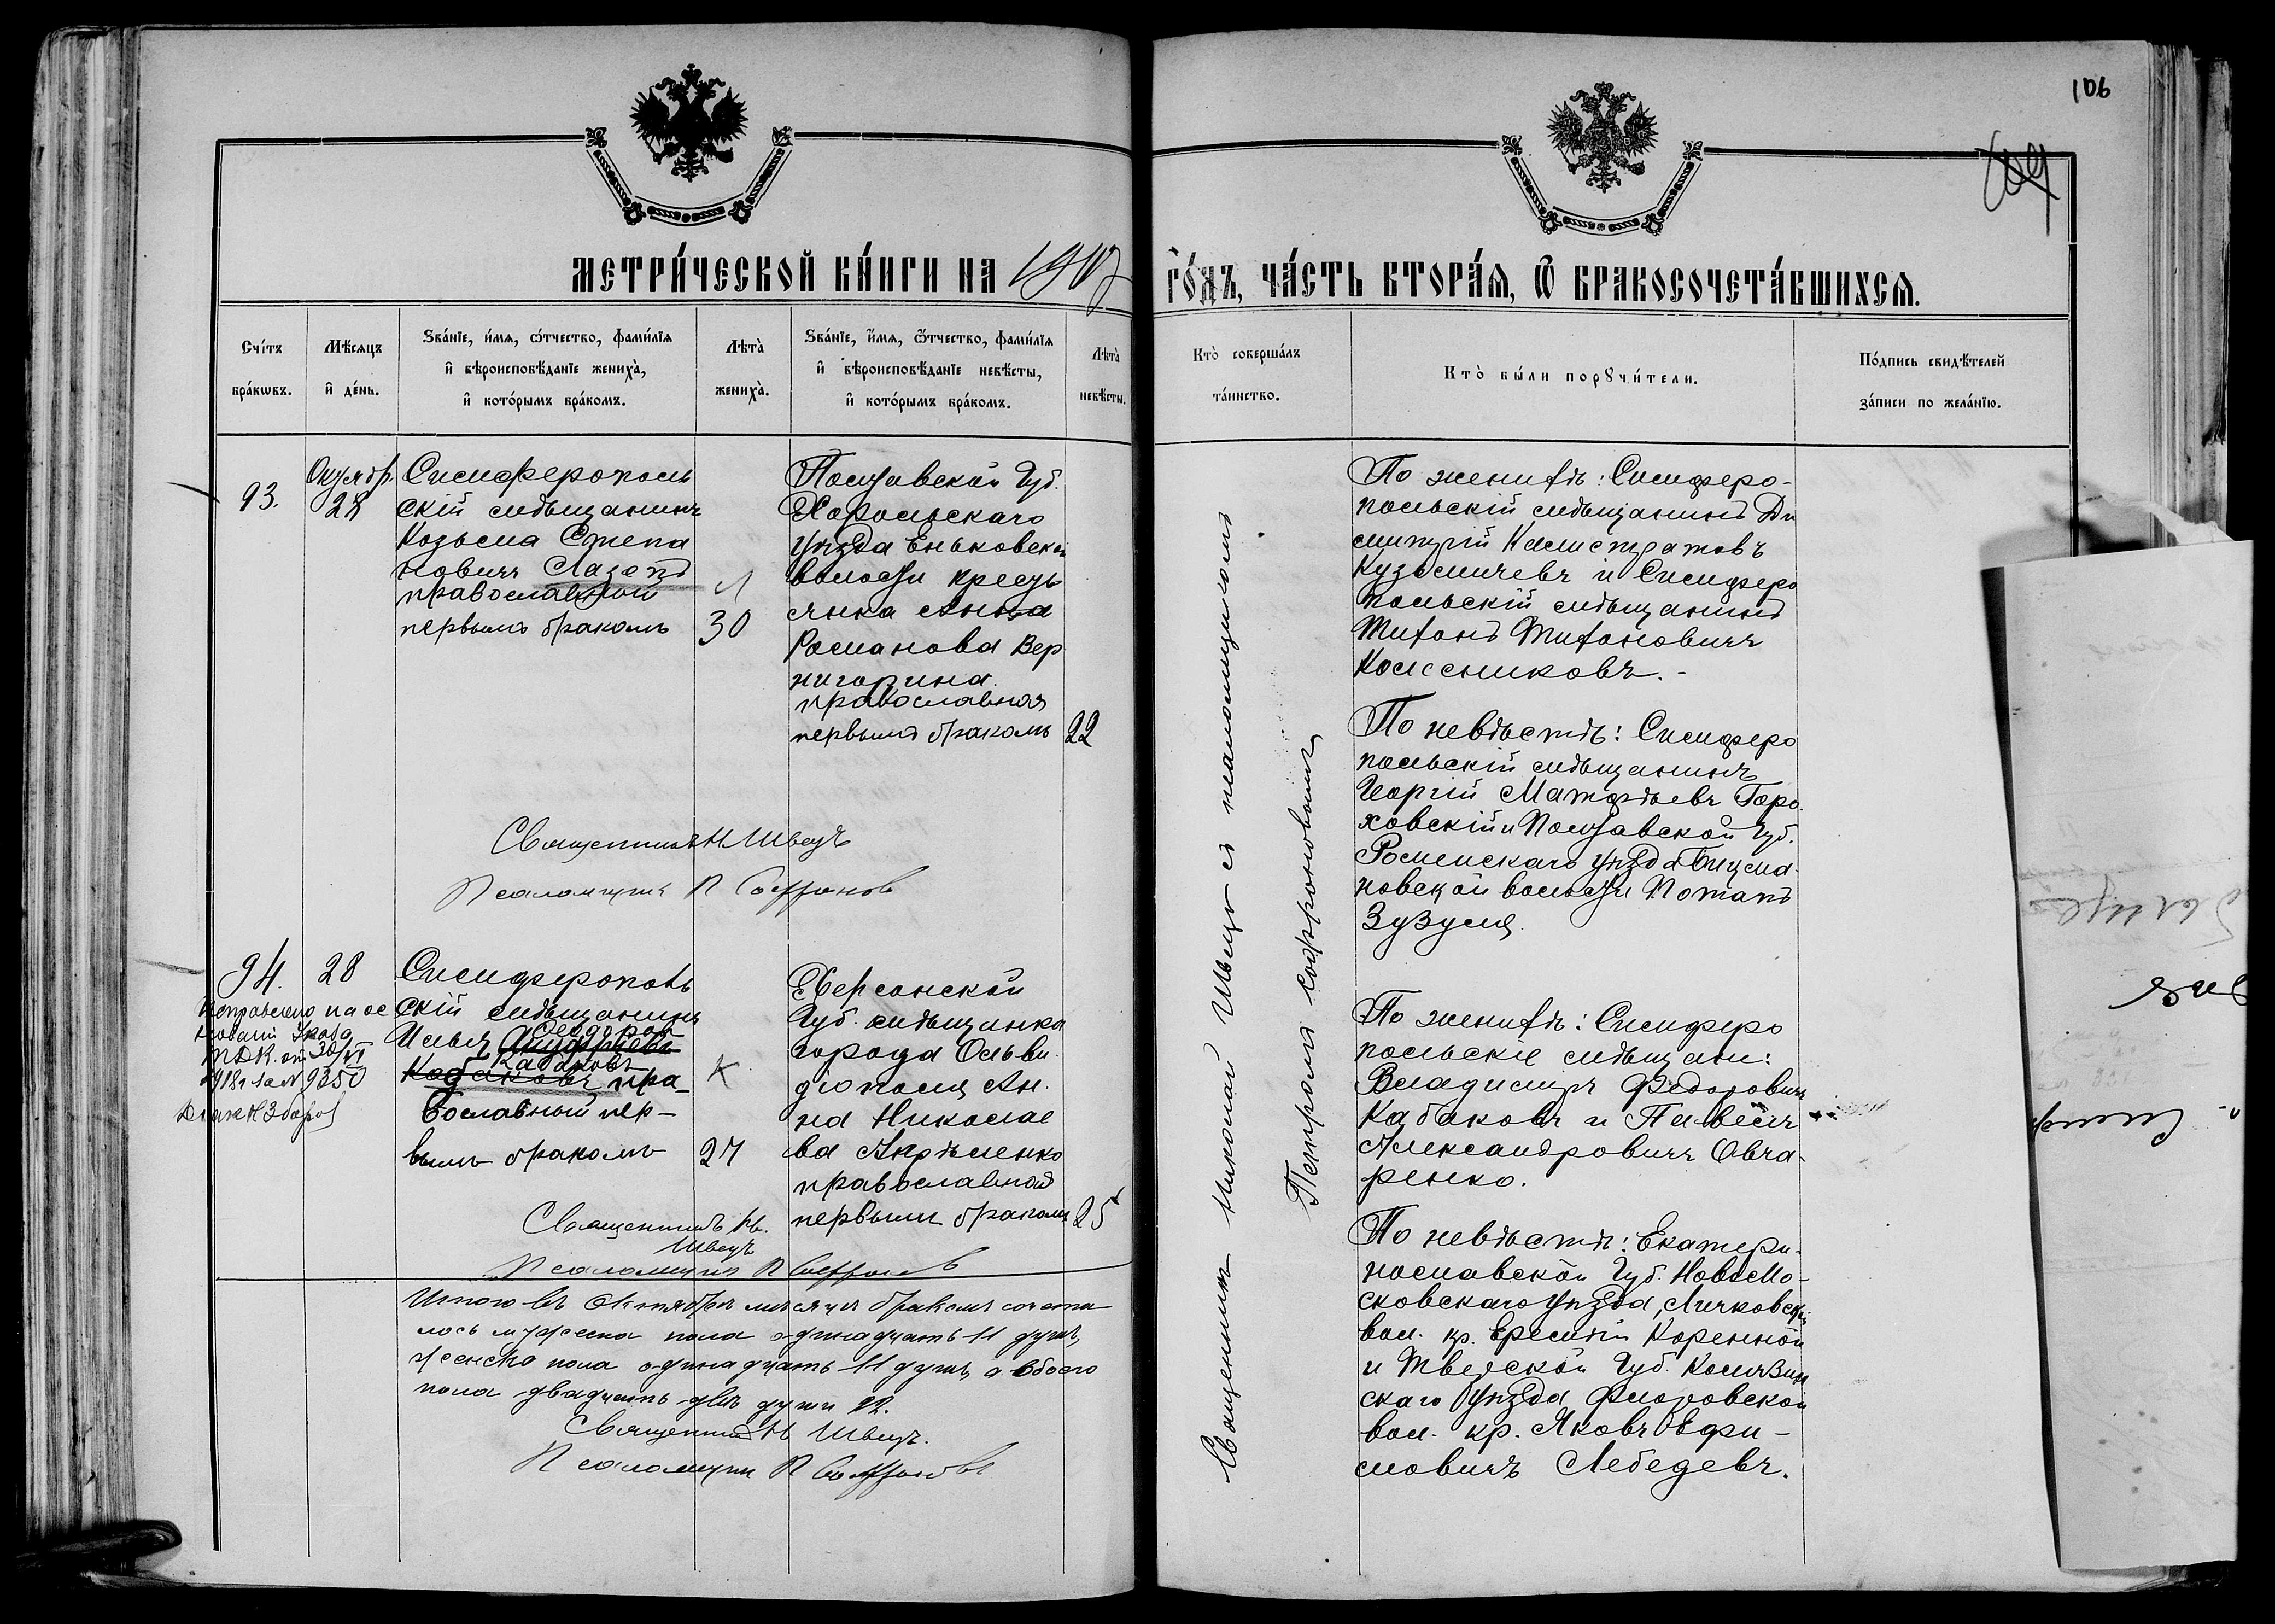 106
МЕТРИ́ЧЕСКОЙ КН́ИГИ НА 1907 ГО́ДЪ, ЧА́СТЬ ВТОРА́Я, Ѽ БРАКОСОЧЕТА́ВШИХСЯ.
Сче́тъ бра́кѡвъ.
Мѣ́сяцъ и де́нь.
Зва́нїе, и́мя, ѻ́тчество, фами́лїя
и вѣроисповѣ́данїе жениха̀,
и кото́рымъ бра́комъ.
Лѣта̀ жениха̀.
Зва́нїе, и́мя, ѻ́тчество, фами́лїя
и вѣроисповѣ́данїе невѣ́сты,
и кото́рымъ бра́комъ.
Лѣта̀ невѣ́сты.
Кто̀ соверша́лъ
та́инство.
Кто̀ бы́ли порꙋчи́тели.
По́дпись свидѣ́телей
за́писи по жела́нїю.
93.
Октябр.
28
Симферополь
скій мѣщанинъ
Козьма Степа
новичъ
православный
первымъ бракомъ
30
Полтавской Губ.
Хорольскаго
уѣзда Еньковской
волости кресть
янка Анна
Романова Вер
нигорина
православная
первымъ бракомъ
22
Священникъ Н Швецъ
Псаломщикъ П Софронов
Священникъ Николай Швецъ съ псаломщикомъ
Петромъ Софроновымъ
По женихѣ: Симферо-
польскій мѣщанинъ Ди
митрій Калистратовъ
Кузьмичевъ и Симферо
польскій мѣщанинъ
Тихонъ Тихоновичъ
Колесниковъ.-
По невѣстѣ: Симферо
польскій мѣщанинъ
Георгій Матфѣевъ Горо
ховскій и Полтавской Губ.
Роменскаго уѣзда
новской волости Потапъ
Зузуля.
94.
28
Исправлено на ос
новании Указа
Т.Д.К. от 30/VI
1918 г за № 9350
Симферополь
скій мѣщанинъ
Илья Ѳеодоров
Кабаковъ пра-
вославный пер-
вымъ бракомъ
27
Херсонской
Губ. мѣщанка
города Ольви
діополя Ан.
на Николае
ва Ефименко
православной
первымъ бракомъ
25
Священникъ Н.
Швецъ
Псаломщикъ П Софронов
По женихѣ: Симферо
польскіе мѣщане:
Владимиръ Федоровичъ
Кабаковъ и Павелъ
Александровичъ Овча-
ренко.
По невѣстѣ: Екатери-
нославской Губ. Новомо-
сковскаго уѣзда, Личковской
вол. кр. Еремѣй Коренной
и Тверской Губ. Колязин
скаго уѣзда Флоровской
вол. кр. Яковъ Ефи-
мовичъ Лебедевъ.
Итого въ Октябрѣ мѣсяцѣ бракомъ сочета
лось мужеска пола одинадцать 11 душъ,
женска пола одинадцать 11 душъ, а обоего
пола двадцать двѣ души 22.
Священникъ Н Швецъ.
Псаломщикъ П Софроновъ